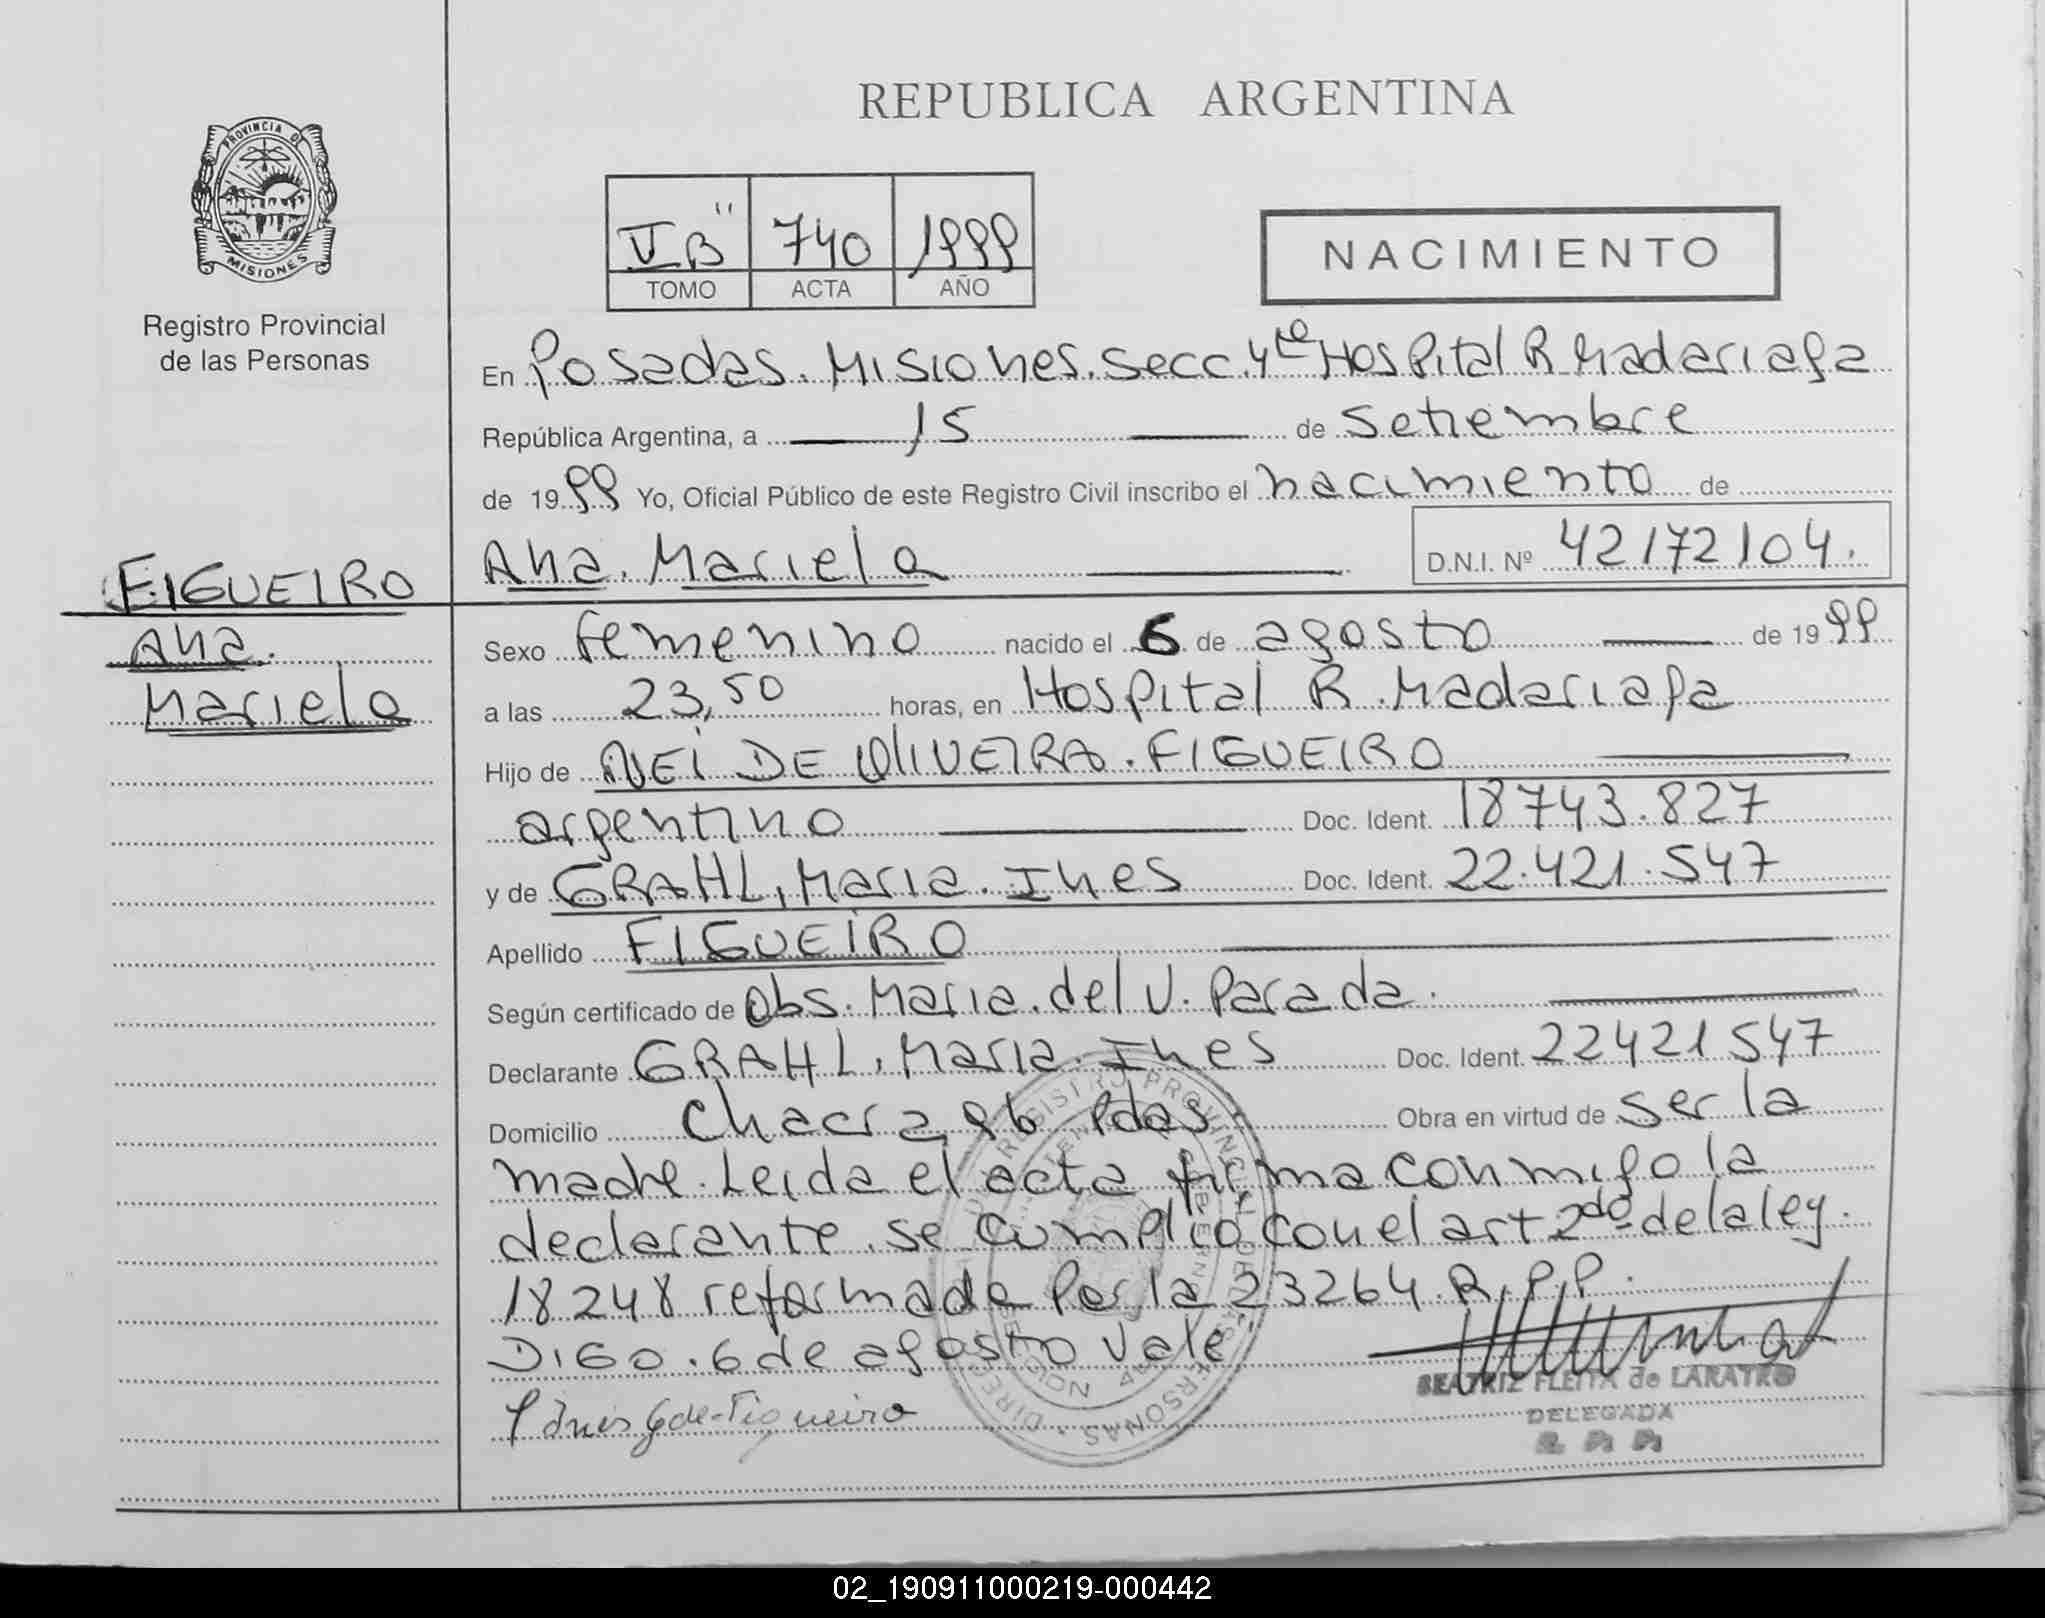 REPUBLICA ARGENTINA
PROVINCIA DE
MISIONES
Registro Provincial
de las Personas
V B" 740 1999
TOMO ACTA AÑO
NACIMIENTO
En Posadas. Misiones. Secc. 4ta Hospital R Madariaga
República Argentina, a 15 de Setiembre
de 1999 Yo, Oficial Público de este Registro Civil inscribo el nacimiento de
Ana. Mariela D.N.I. Nº 42172104.
FIGUEIRO
Ana.
Mariela
Sexo femenino nacido el 6 de agosto de 1999
a las 23,50 horas, en Hospital R. Madariaga
Hijo de NEI DE OLIVEIRA. FIGUEIRO
argentino Doc. Ident. 18743.827
y de GRAHL, Maria. Ines Doc. Ident. 22.421.547
Apellido FIGUEIRO
Según certificado de Obs. Maria. del V. Parada.
Declarante GRAHL, Maria. Ines Doc. Ident. 22421547
Domicilio Chacra 96 Pdas Obra en virtud de ser la
madre. Leida el acta firma conmigo la
declarante. se cumplio con el art 2do de la ley.
18248 reformada Por la 23264. R.P.P.
DIGO. 6 de agosto Vale
Ines G de Figueiro
BEATRIZ FLEITA de LARATRO
DELEGADA
R. P. P.
02_190911000219-000442